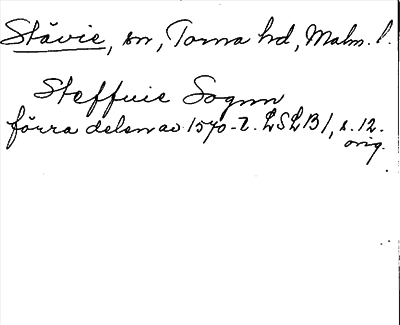 Stävie, sn, Torna hd, Malm. l.
Steffuie Sognn
förra delen av 1570-t. LSLB1, s. 12.
orig.